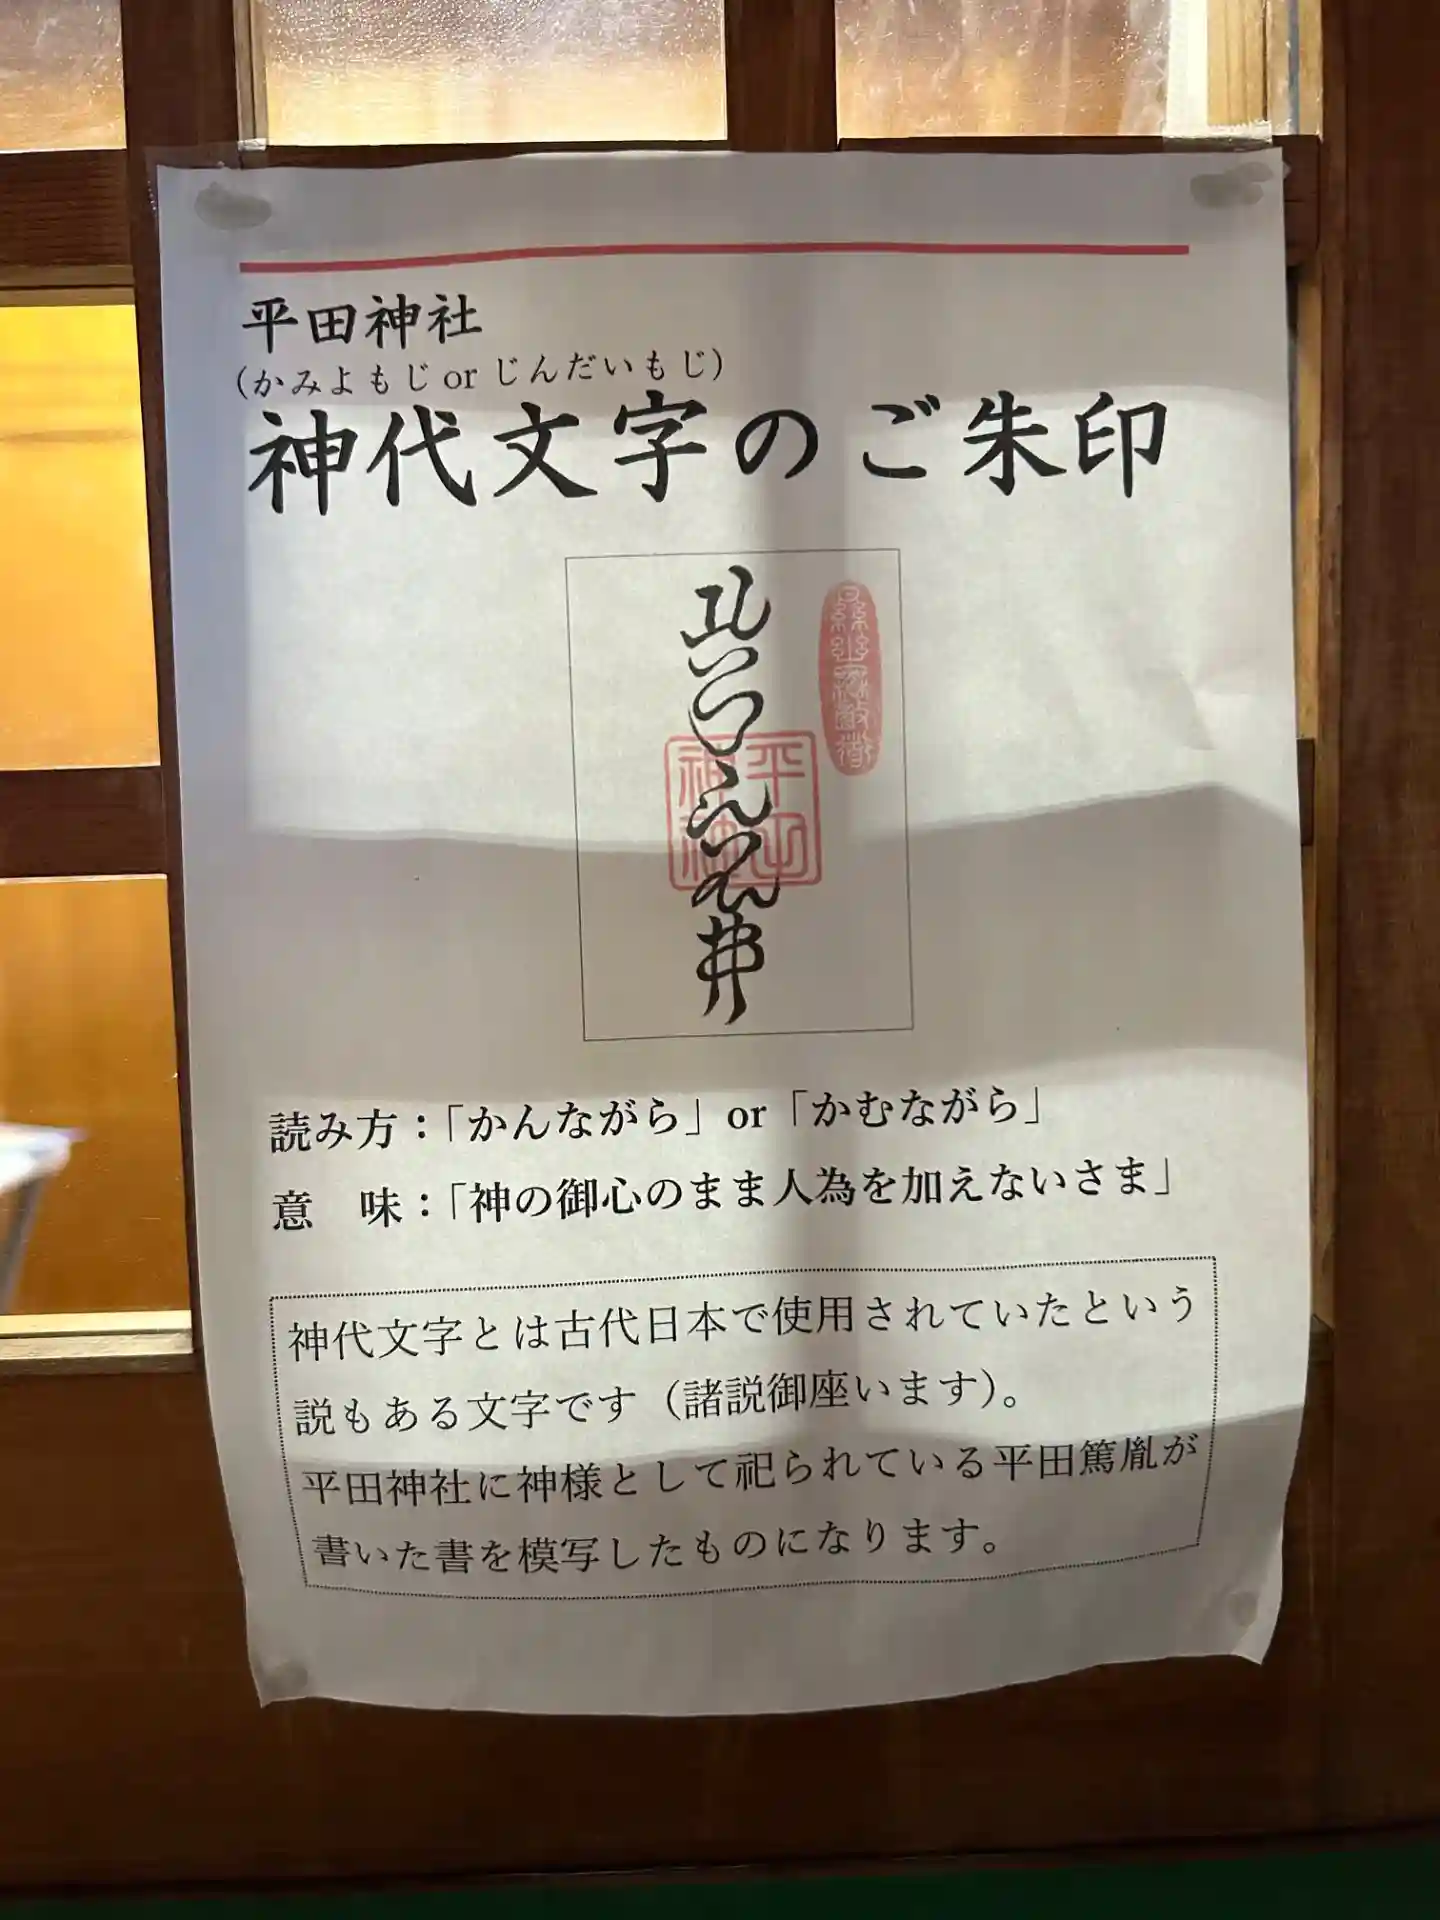 平田神社
(かみよもじ or じんだいもじ)
神代文字のご朱印
平田
神社
読み方：「かんながら」or「かむながら」
意　味：「神の御心のまま人為を加えないさま」
神代文字とは古代日本で使用されていたという
説もある文字です（諸説御座います）。
平田神社に神様として祀られている平田篤胤が
書いた書を模写したものになります。